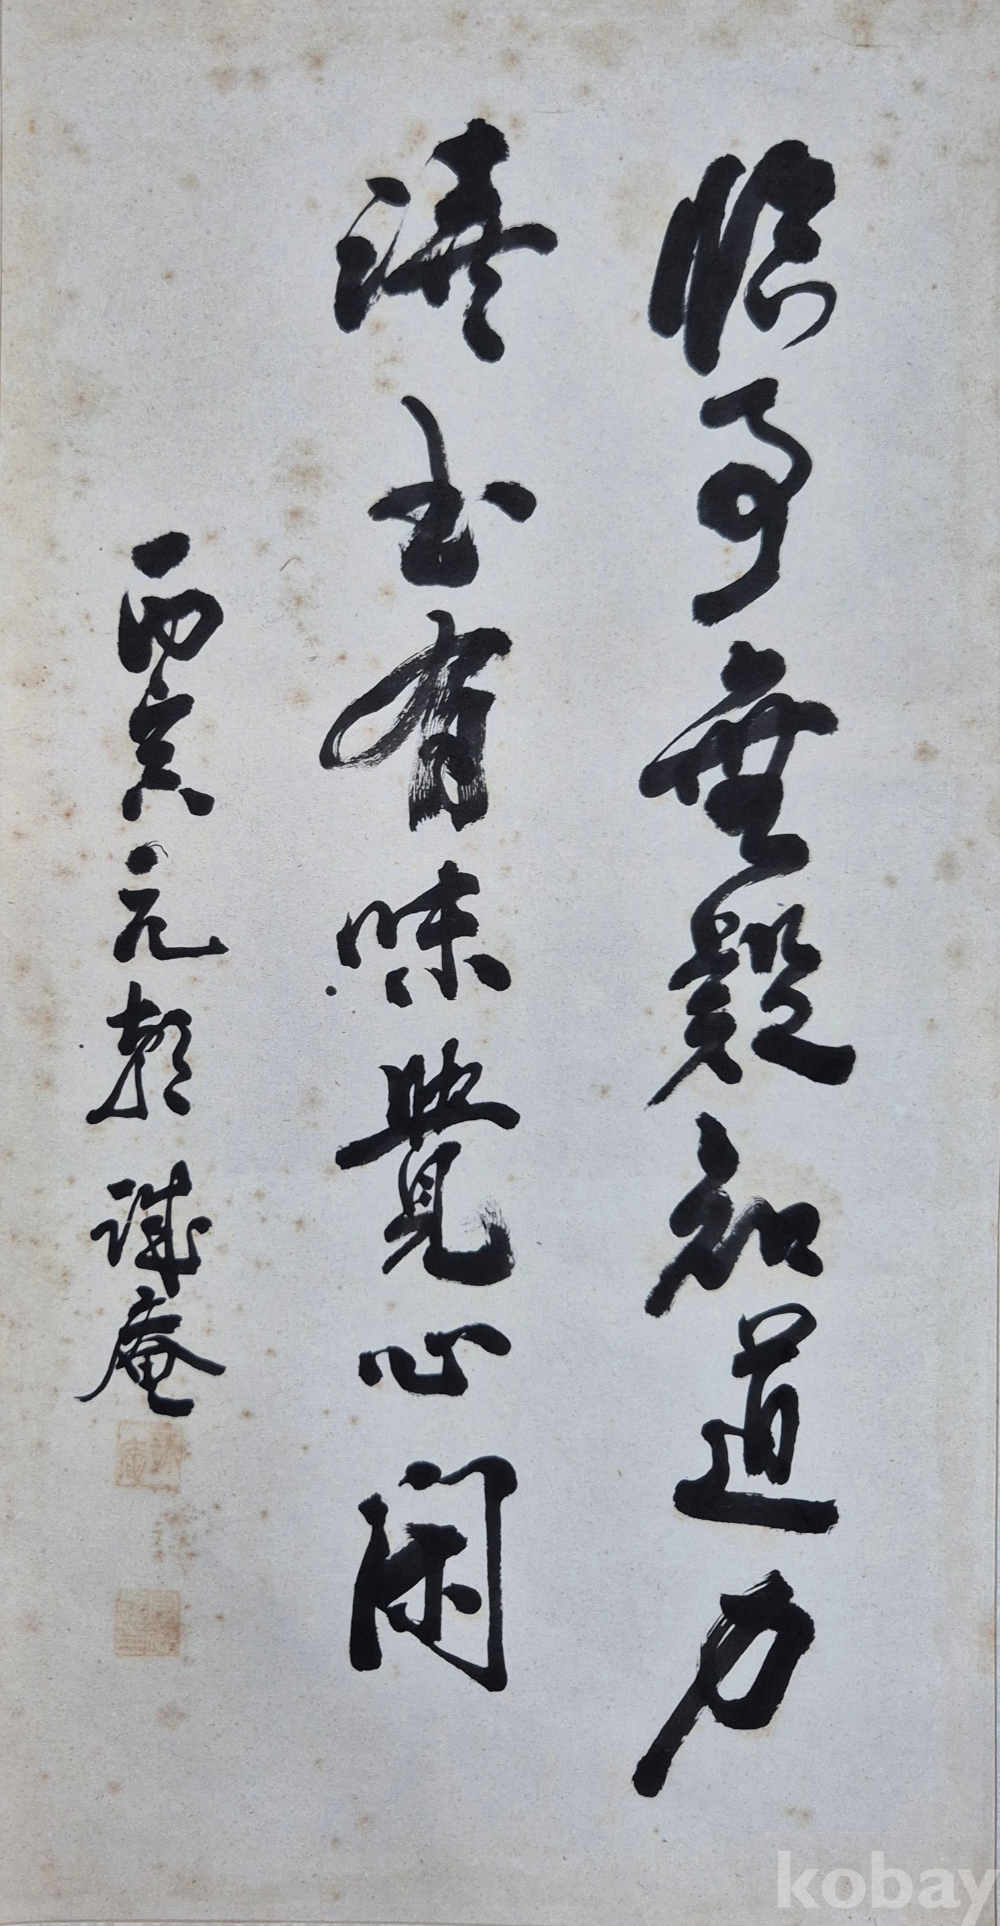 臨事無疑知道力
讀書有味覺心閑
丙寅元朝 誠庵
kobay